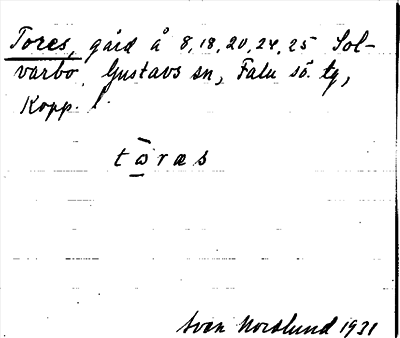 Tores, gård å 8, 18, 20, 24, 25 Sol-
varbo, Gustavs sn, Falu sö. tg,
Kopp. l.
tōræs
Sven Norslund 1931